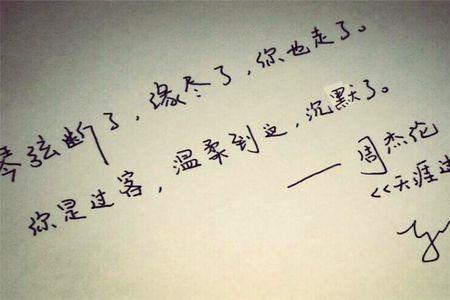 琴弦断了，缘尽了，你也走了。
你是过客，温柔到这，沉默了。
——周杰伦
<<天涯过